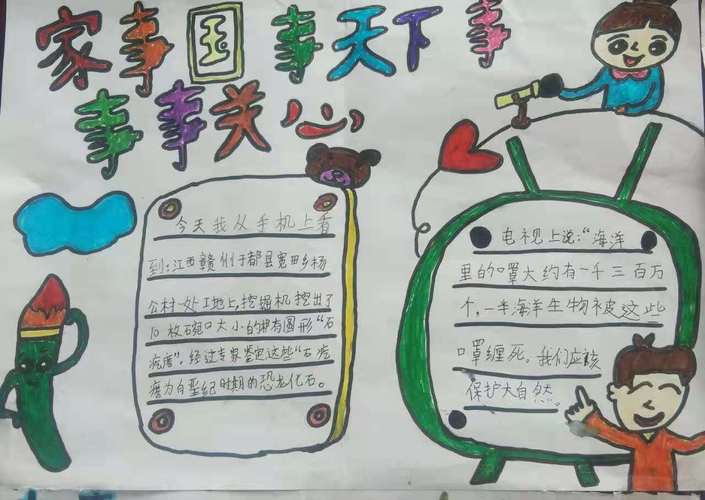 家事国事天下事
事事关心
今天我从手机上看
到:江西赣州于都县宽田乡杨
公村一处工地上,挖掘机挖出了
10枚碗口大小的稀有圆形“石
疙瘩”,经过专家鉴定这些“石疙
瘩为白垩纪时期的恐龙化石。
电视上说:“海洋
里的口罩大约有一千三百万
个,一半海洋生物被这些
口罩缠死。我们应该
保护大自然。